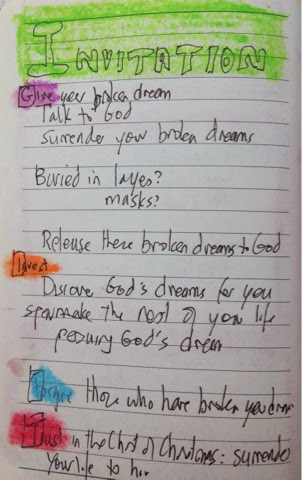 INVITATION
Give your broken dream
Talk to God
Surrender your broken dreams
Buried in layes?
masks?
Release these broken dreams to God
Invest
Discover God's dreams for you
make the rest of your life
God's dream
Forgive those who have broken your
Trust in the Christ of Christmas: surrender
your life to him